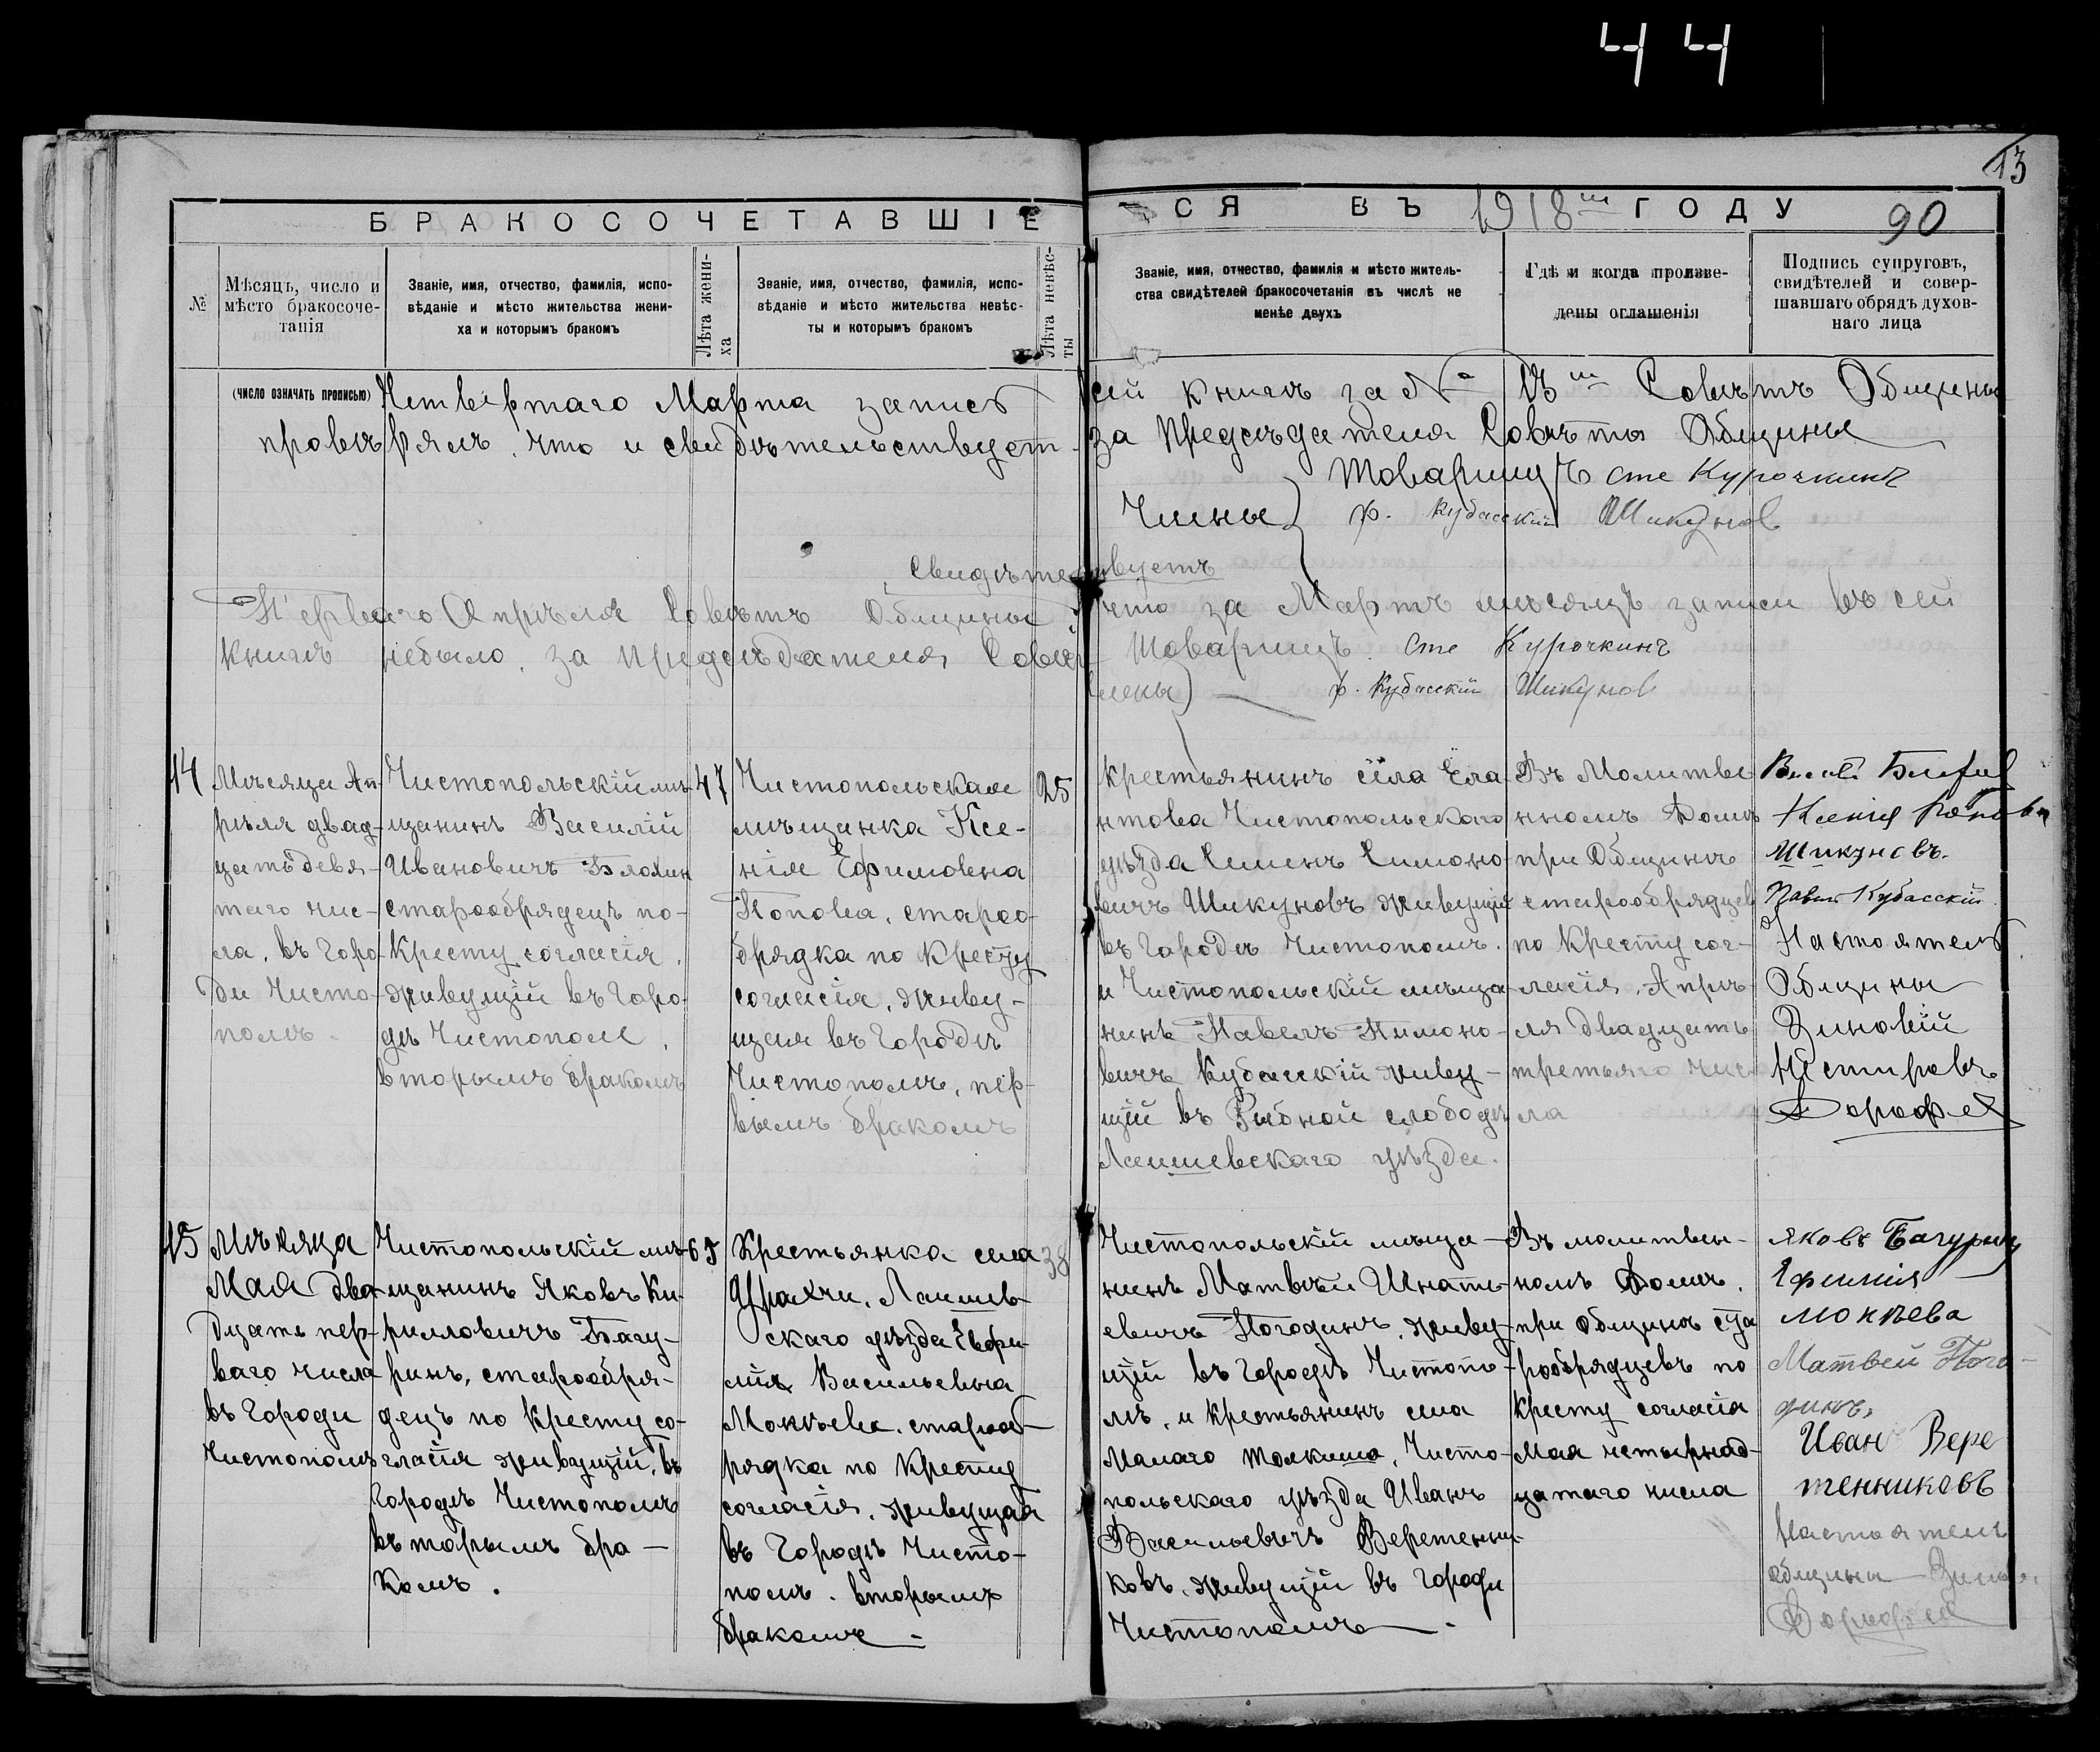 44
13
БРАКОСОЧЕТАВШІЕ
СЯ ВЪ 1918мъ ГОДУ
90
№
Мѣсяцъ, число и
мѣсто бракосоче-
танія
Званіе, имя, отчество, фамилія, испо-
вѣданіе и мѣсто жительства жени-
ха и которымъ бракомъ
Лѣта жени-
ха
Званіе, имя, отчество, фамилія, испо-
вѣданіе и мѣсто жительства невѣс-
ты и которымъ бракомъ
Лѣта невѣс-
ты
Званіе, имя, отчество, фамилія и мѣсто житель-
ства свидѣтелей бракосочетанія въ числѣ не
менѣе двухъ
Гдѣ и когда произве-
дены оглашенія
Подпись супруговъ,
свидѣтелей и совер-
шавшаго обрядъ духов-
наго лица
(число означать прописью)
Четвертаго Марта запись сей книгѣ за № Совѣтъ Общины
провѣрялъ, что и свидѣтельствуетъ за Предсѣдателя Совѣта Общины
Товарищъ сте Курочкинъ
Члены р. Кубасский Шикунов
свидѣтельствуетъ
Перваго Апрѣля Совѣтъ Общины что за Мартъ мѣсяцъ записи въ сей
книгѣ небыло, за предсѣдателя Совѣт Товарищъ сте Курочкинъ
члены) р. Кубасскій Шикунов
14
Мѣсяца Ап-
рѣля двад-
цатьдевя-
таго чис-
ла, въ Горо-
ди Чисто-
полѣ.
Чистопольскій мѣ-
щанинъ Василій
Ивановичъ
старообрядецъ по-
кресту согласія,
живущій въ Горо-
дѣ Чистополе,
вторымъ бракомъ
47
Чистопольская
мѣщанка Ксе-
нія Ефимовна
Попова, старо-
брядка по кресту
согласія, живу-
щея въ Городѣ
Чистополѣ, пер-
вымъ бракомъ
25
крестьянинъ села Ела
нтова Чистопольскаго
уѣзда Семенъ Симоно-
вичъ Шикуновъ живущій
въ Городѣ Чистополѣ.
и Чистопольскій мѣща-
нинъ Павелъ Пимоно-
вичъ Кубасскій живу-
щій въ Рыбной слободѣ
Лаишевскаго уѣзда.
Въ Молитве
нномъ Домѣ
при Общинѣ
старообрядцев
по кресту сог-
ласія, Апрѣ-
ля двадцать
третьяго чис
ла
Ксенія Попова
Шикуновъ.
Павел Кубасскій
Настоятель
Общины
Зиновій
Нестировъ
Дорофея
15
Мѣсяца
Мая два-
дцать пер-
ваго числа
въ Городи
Чистополѣ
Чистопольскій мѣ-
щанинъ Яковъ Ки-
рилловичъ Багу-
ринъ, старообря-
децъ по кресту со-
гласія живущій, въ
Городѣ Чистополѣ
въторымъ бра-
комъ.
65
Крестьянка села
Урахчи, Лаишев-
скаго уѣзда Евфи-
мія Васильевна
Мокѣева, староо-
рядка по кресту
согласія, живущая
въ Городѣ Чисто-
полѣ. вторымъ
бракомъ
38
Чистопольскій мѣща-
нинъ Матвѣй Игнать-
евичъ Погодинъ, живу-
щій въ Городѣ Чистопо-
лѣ, и крестьянинъ села
Малаго Толкиша, Чисто-
польскаго уѣзда Иванъ
Васильевичъ Веретенни-
ковъ, живущій въ Городи
Чистополѣ
Въ молитвен-
номъ Домѣ,
при Общинѣ ста
рообрядцевъ по
кресту согласія
Мая четырнад-
цатаго числа
Яковъ Багуринъ
Ефимія
Мокѣева
Матвей Пого-
динъ,
Иван Вере
тенниковъ
Настоятель
общины
Дорофея